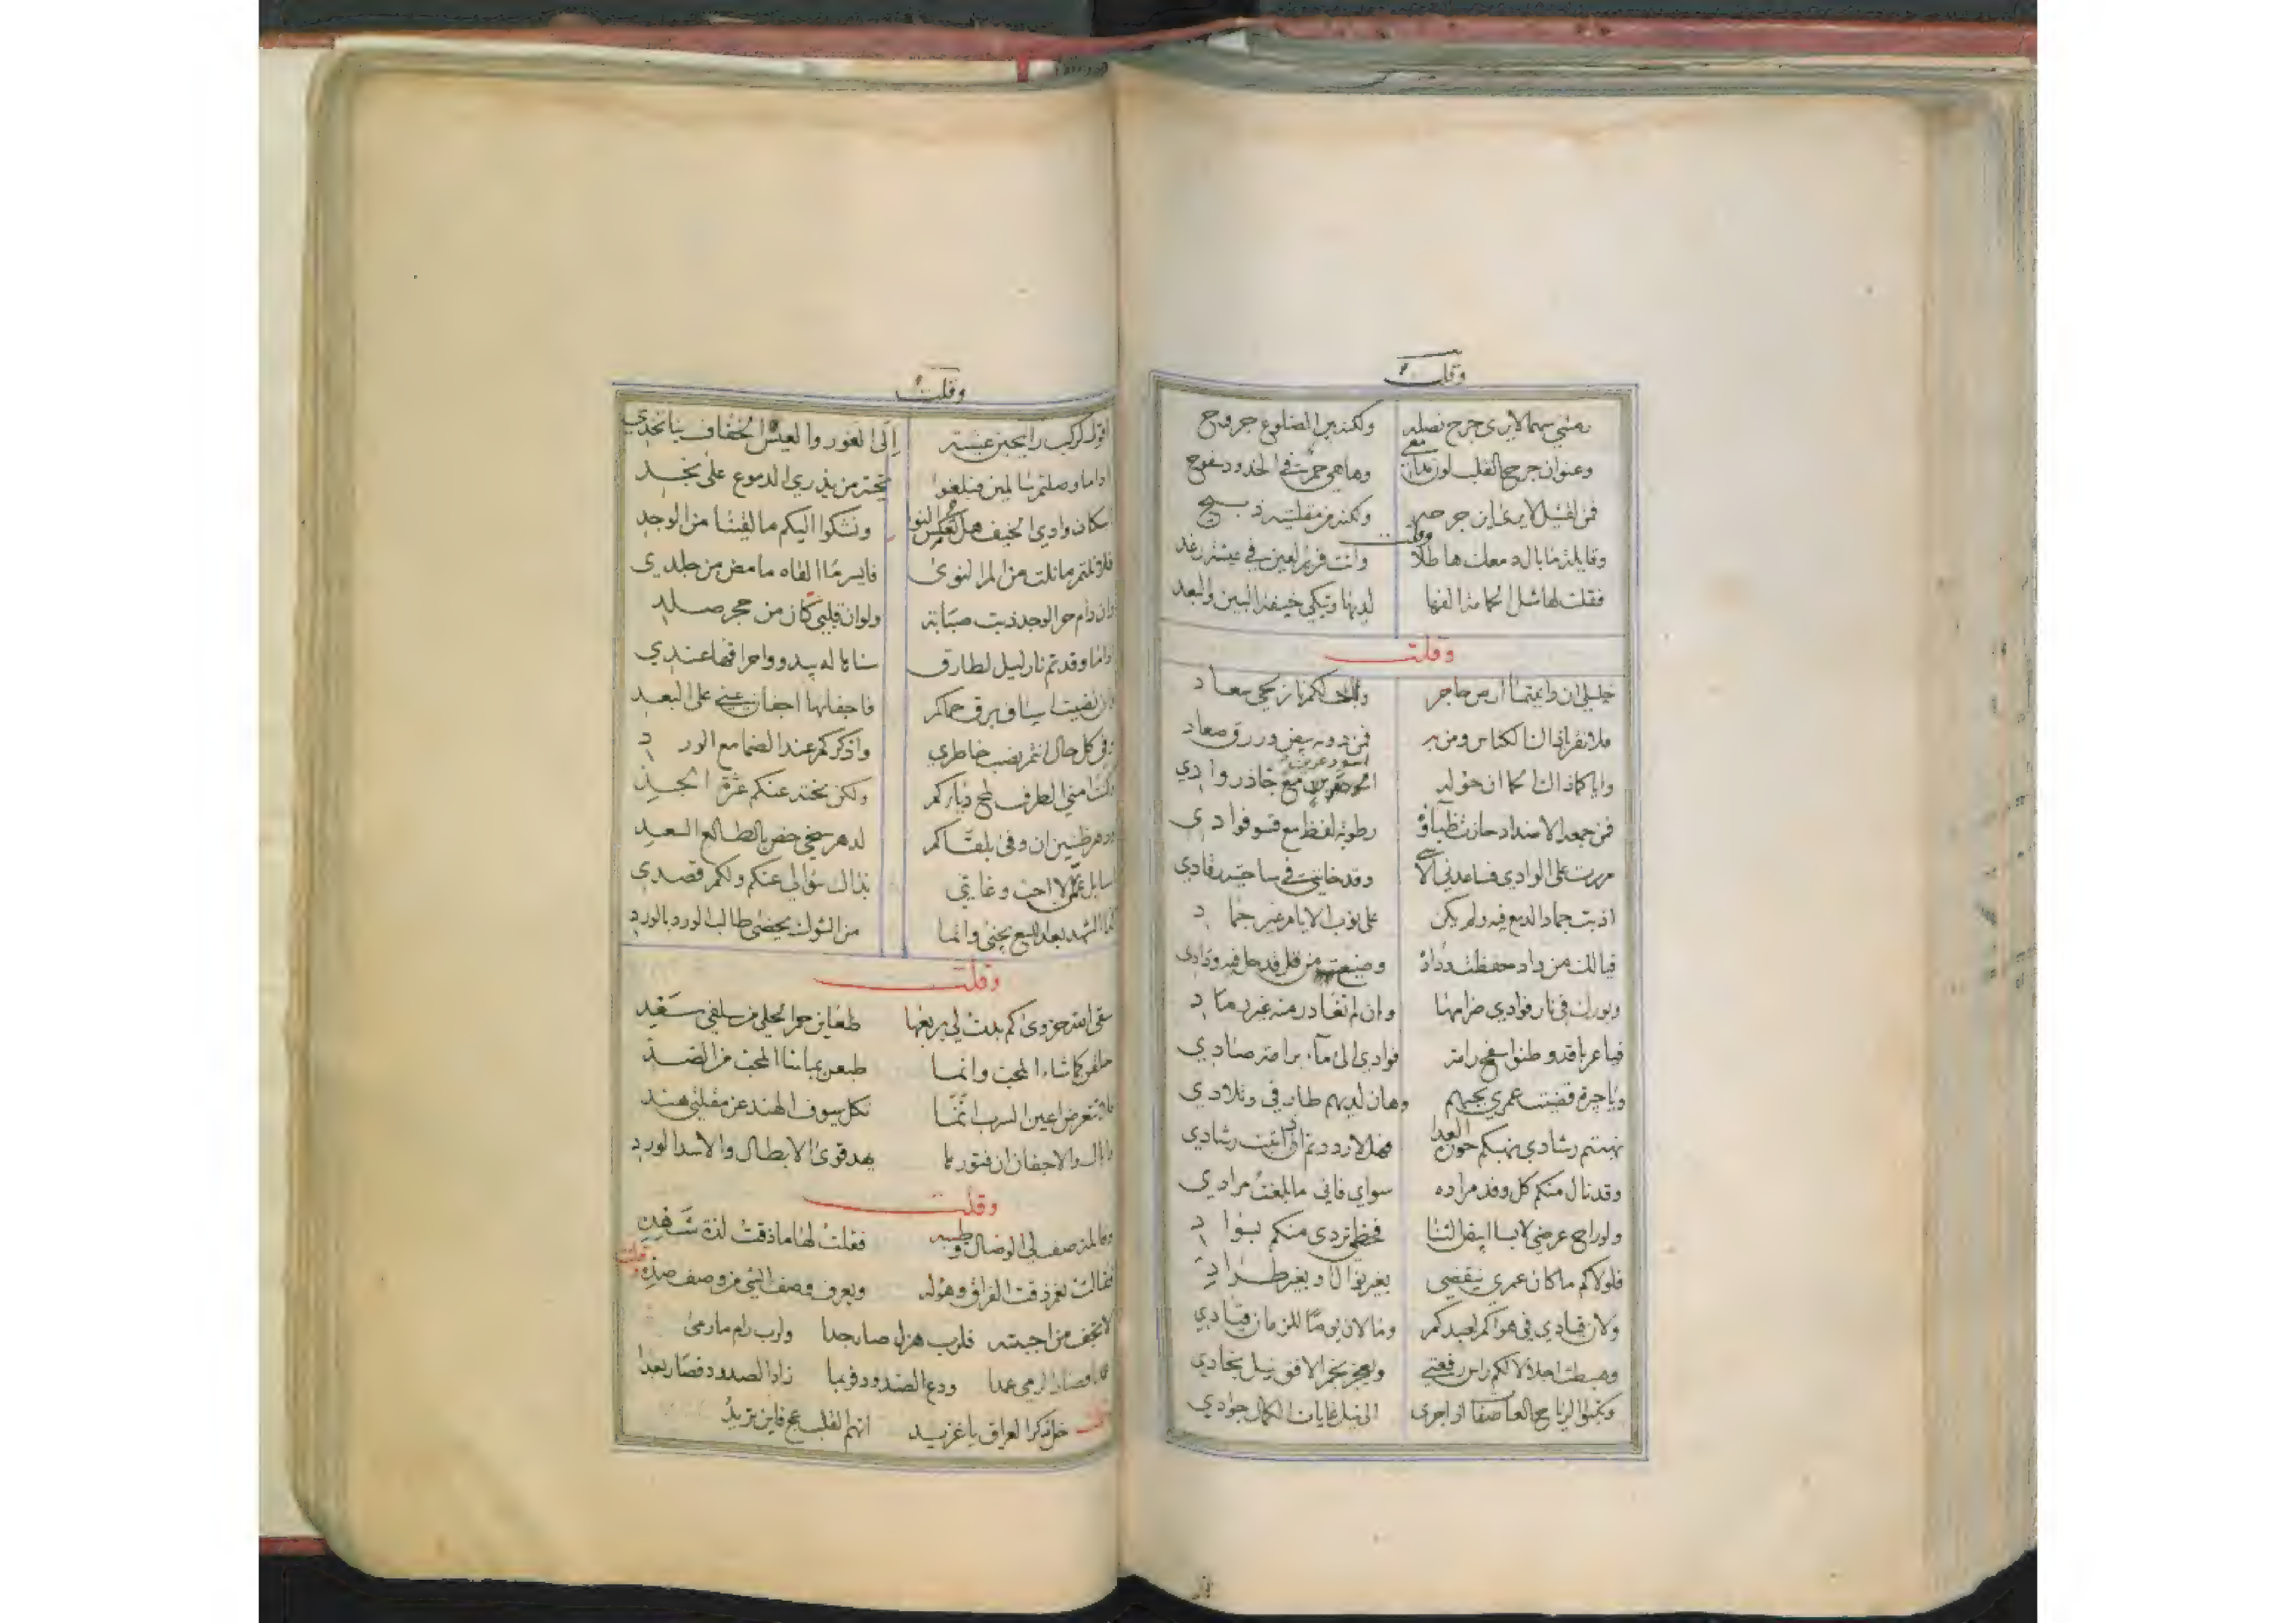 وقلت
رمتني سهما لا يرى جرح نصله ولكنه بين الضلوع جروح
وعنوان جرح القلب لون مدامعي وها هي حمرت في الخدود سفوح
فمن لقتيل لا يرى اين جرحه ولكنه من مقلتيه ذبيح
وقلت
وقايلة ما بال دمعك هاطلا وانت قرير العين في عيشة رغد
فقلت لها شمل الحما مذ الفها لديها وتبكي خيفة البين والبعد
وقلت
خليلي ان وافيتما ارض حاجر ولاحت لكم نار بحي سعاد
فلا تقربا ذاك الكناس ومن به فمن دونه بيض وزرق صعاد
واياكما ذاك الحما ان حوله اسود عرين مع جاذر وادي
فمن جمعه الاضداد حازت ظباؤه رطوبة لفظ مع قسو فوادي
مررت على الوادي فساعدني الاسى وقد خانني في ساحتيه رقادي
اذبت جماد الدمع فيه ولم يكن على نوب الايام غير جماد
فيالك من واد حفظت وداده وضيعت من قد حل فيه ودادي
وبورك في نار فوادي ضرامها وان لم تغادر منه غير رماد
فيا عربا قد وطنوا سفح رامة فوادي الى ماء برامة صادي
ويا جيرة قضيت عمري بحبهم وهان لديهم طارفي وتلادي
نهبتم رشادي نهبكم حوزة العدا فهلا رددتم اذ ابنت رشادي
وقد نال منكم كل وفد مراده سواي فاني ما بلغت مرادي
ولو راح عرضي لابسا ابيض الثنا فحظي تردى منكم بسواد
فلولاكم ما كان عمري ينقضي بغير نوال او بغير طراد
ولان قيادي في هواكم لعبدكم وما لان يوما للزمان قيادي
وهبطت اجلالا لكم راس رفعتي ويعجز نجم الافق نيل نجادي
وتكبوا الرياح العاصفات اذا جرى الى نيل غايات الكمال جوادي
وقلت
اقول لركب رايحين عشية الى الغور والعيس الخفاف بنا تخدي
اذا ما وصلتم سالمين فبلغوا تحية من يذري الدموع على نجد
اسكان وادي الخيف هل تعكس النوى ونشكوا اليكم ما لقينا من الوجد
فلو نلتم ما نلت من الم النوى فايسر ما القاه ما مض من جلدي
وان دام حر الوجد ذبت صبابة ولو ان قلبي كان من حجر صلد
واما وقدتم نار ليل لطارق سناها له يبدو واحراقها عندي
وان نضيت اسياف برق حماكم فاجفانها اجفان عيني على البعد
وفي كل حال انتم نصب خاطري واذكركم عند الضما مع الورد
وكنتم مني الطرف لمح دياركم ولكن تحته عنكم عثرة الجد
ودهر ظنين ان وفى بلقاكم لدهر سخي خص بالطالع السعد
اسايل عمن لا احب وغايتي بذاك سؤالي عنكم ولكم قصدي
كما الشهد بعد اللسع يجنى وانما من الشوك يحضى طالب الورد بالورد
وقلت
سقى الله حزوى كم بدت لي بربعها ظعاين حمر الحلي من سلفي سعد
خلقن كما شاء المحب وانما طبعن عيانا للمحب من الصد
فلا تتعرض اعين السرب انما تكل سيوف الهند عن مقلتي هند
واياك والاجفان ان فتورها يهد قوى الابطال والاسد الورد
وقلت
وقالت صف لي الوصال وطيبه فقلت لها ما ذقت لذة شهده
فقالت نعم ذقت الفراق وهوله ويعرف وصف الشيء من وصف ضده
وقلت
لا تجف من احببته فلرب هزل صار جدا ولرب رام ما رمى
عمدا وصار الرمي عمدا ودع الصدود فربما زاد الصدود فصار بعدا
وقلت
خل ذكر العراق يا غر نيد اتهم القلب عج فاين تريد